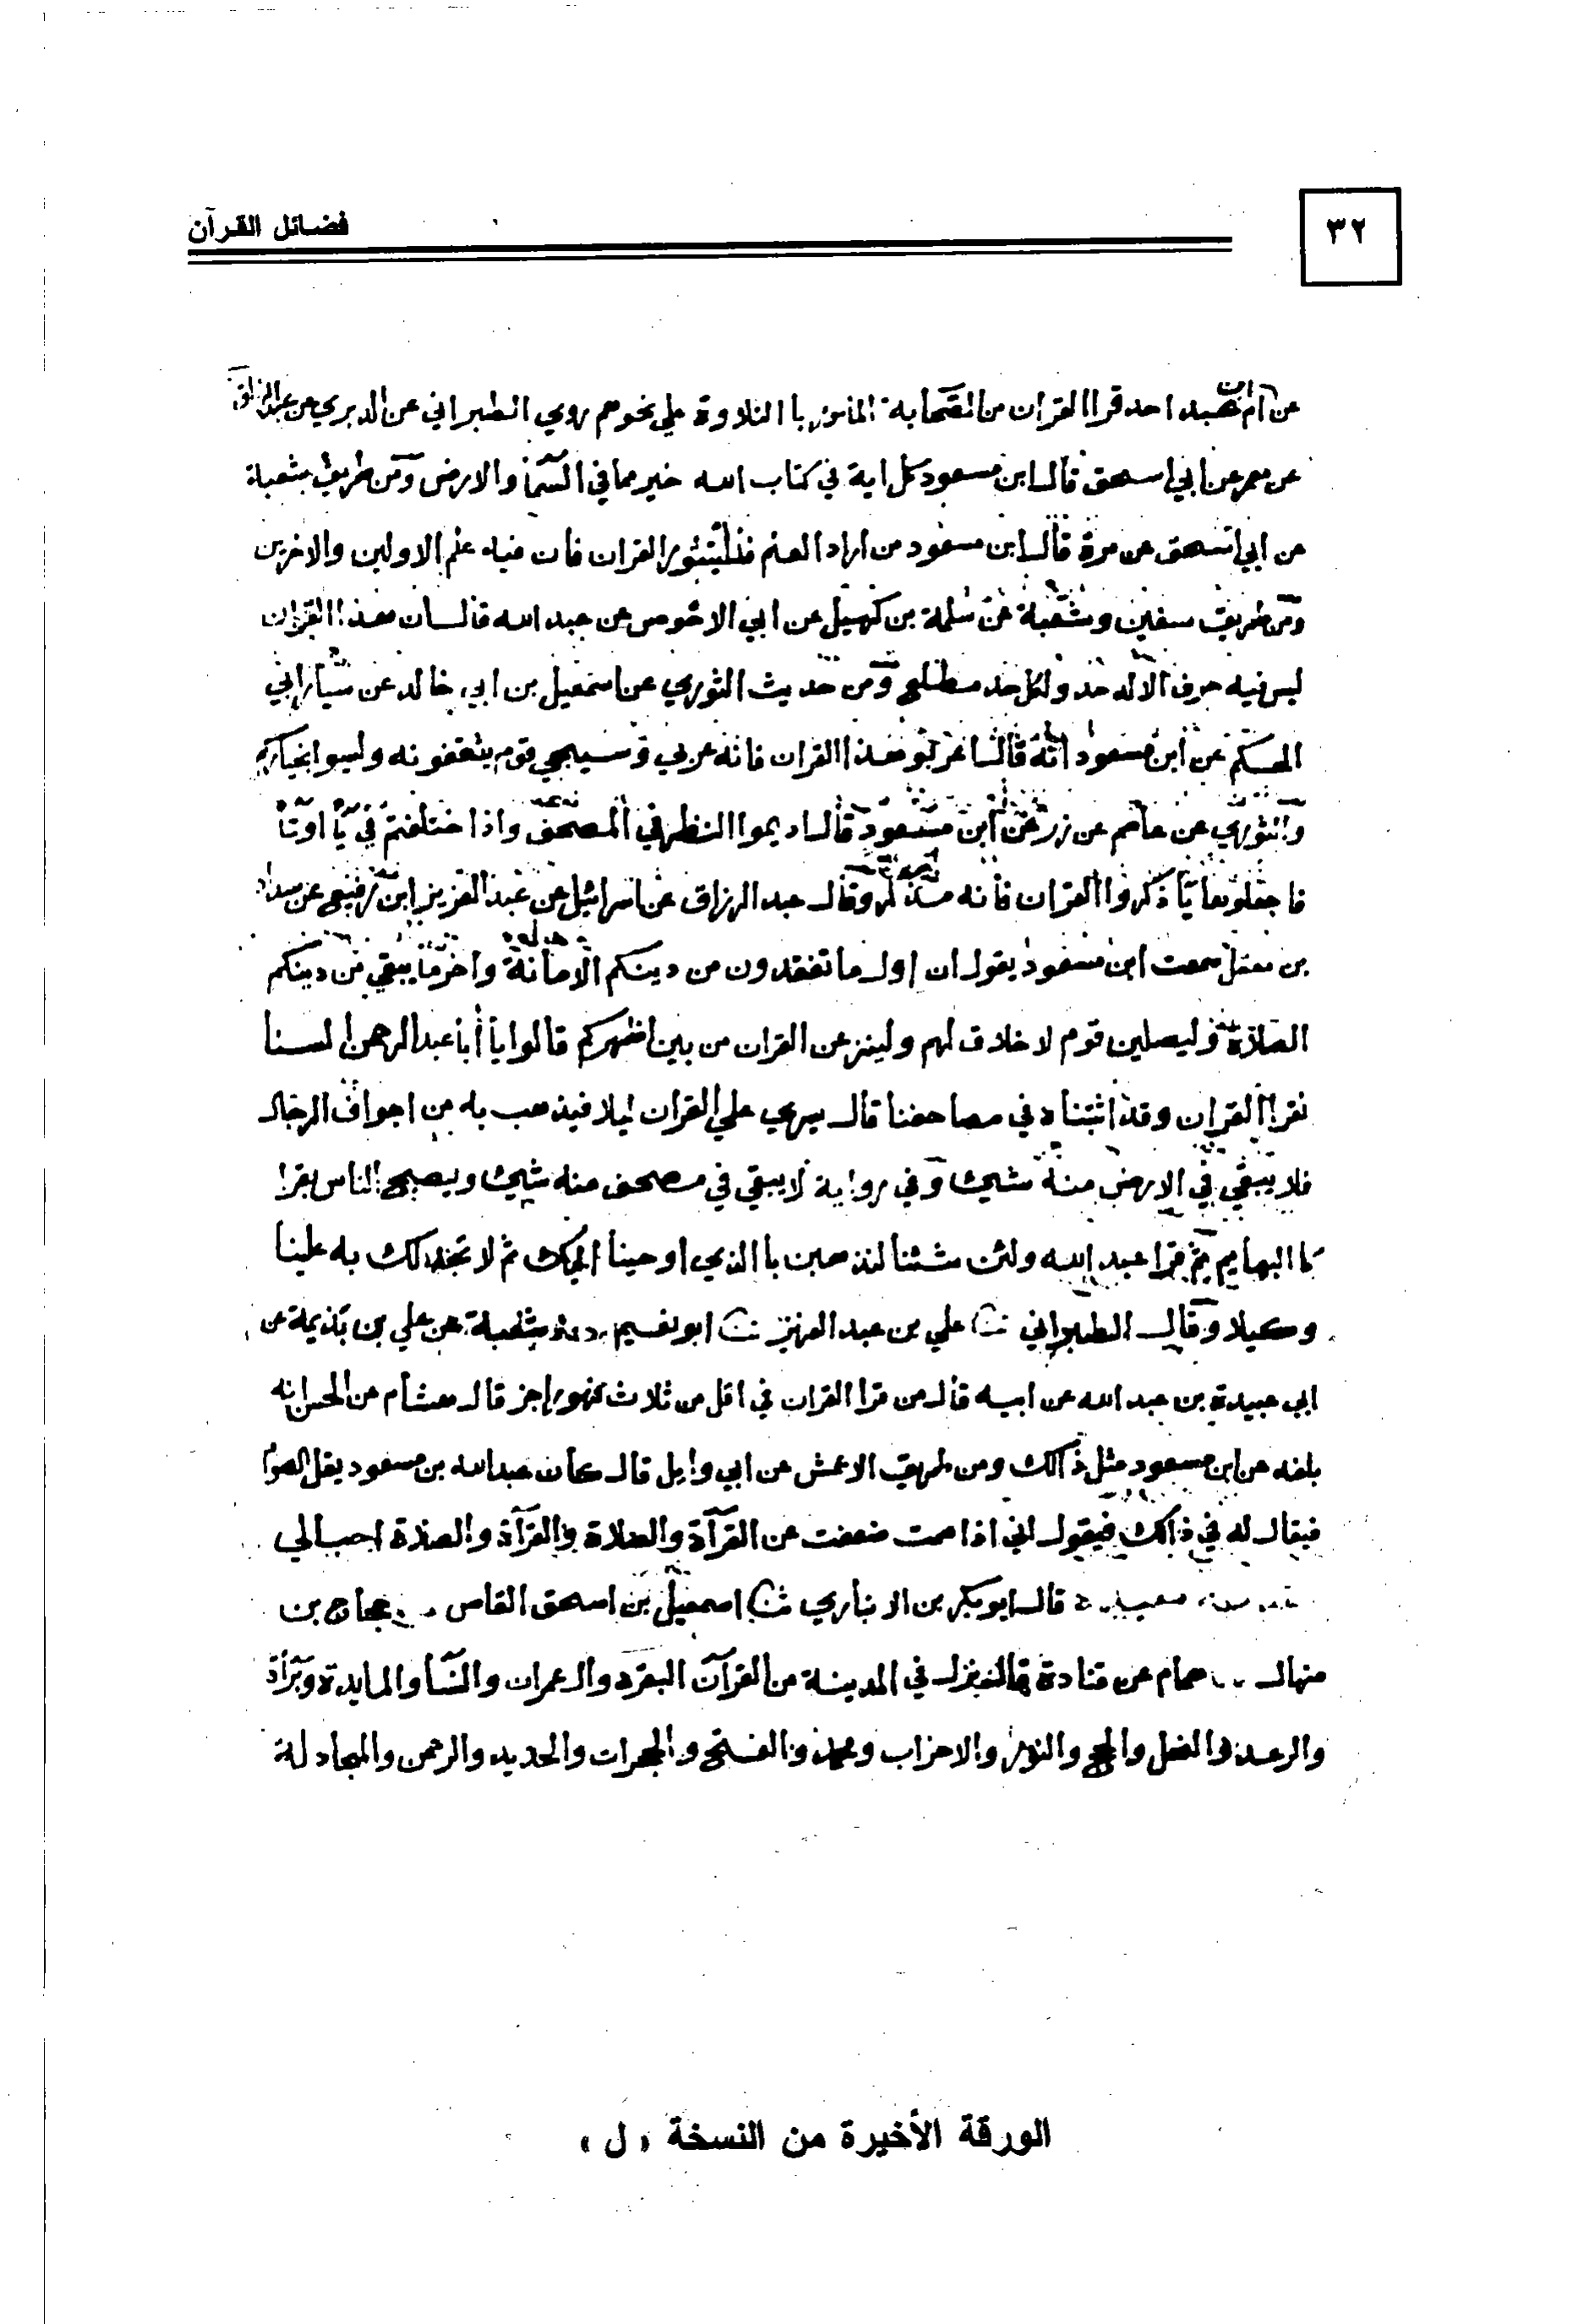 ٣٢
فضائل القرآن
عن ابن ام عبد احد قرا القران من الصحابة المامور با التلاوة علي نحوهم روي الطبراني عن الدبري عن عبد الرزاق
عن معمر عن ابي اسحق قال ابن مسعود كل اية في كتاب الله خير مما في السمآ والارض ومن طريق شعبة
عن ابي اسحق عن مرة قال ابن مسعود من اراد العلم فليثور القران فان فيه علم الاولين والاخرين
ومن طريق سفين وشعبة عن سلمة بن كهيل عن ابي الاحوص عن عبد الله قال ان هذا القران
ليس فيه حرف الا له حد ولكل حد مطلع ومن حديث الثوري عن اسمعيل بن ابي خالد عن سيار ابي
الحكم عن ابن مسعود انه قال اعربو هذا القران فانه عربي وسيجي قوم يثقفونه وليسوا بخياركم
والثوري عن عاصم عن زر عن ابن مسعود قال اديموا النظر في المصحف واذا اختلفتم في يا او تا
فاجعلوها يا ذكروا القران فانه مذكر وقال عبد الرزاق عن اسرائيل عن عبد العزيز ابن رفيع عن شداد
بن معقل سمعت ابن مسعود يقول ان اول ما تفقدون من دينكم الامانة واخر ما يبقي من دينكم
الصلاة وليصلين قوم لا خلاق لهم ولينزعن القران من بين اظهركم قالوا يا أبا عبد الرحمن السنا
نقرا القران وقد اثبتناه في مصاحفنا قال يسري علي القران ليلا فيذهب به من اجواف الرجال
فلا يبقي في الارض منه شيء وفي رواية لا يبقي في مصحف منه شيء ويصبح الناس فقرا
كا البهايم ثم قرا عبد الله ولئن شئنا لنذهبن با الذي اوحينا اليك ثم لا تجد لك به علينا
وكيلا وقال الطبراني ثنا علي بن عبد العزيز ثنا ابو نعيم شعبة عن علي بن بذيمة عن
ابي عبيدة بن عبد الله عن ابيه قال من قرا القران في اقل من ثلاث فهو راجز قال هشام عن الحسن انه
بلغه عن ابن مسعود مثل ذالك ومن طريق الاعمش عن ابي وايل قال كان عبد الله بن مسعود يقل الصوم
فيقال له في ذالك فيقول اني اذا صمت ضعفت عن القرآة والصلاة والقرآة والصلاة احب الي
قال ابو بكر بن الانباري ثنا اسمعيل بن اسحق القاص حجاج بن
منهال همام عن قتادة قال نزل في المدينة من القرآن البقره وال عمران والنسآ والمايدة وبرآة
والرعد والنحل والحج والنور والاحزاب ومحمد والفتح والحجرات والحديد والرحمن والمجادلة
الورقة الأخيرة من النسخة « ل »